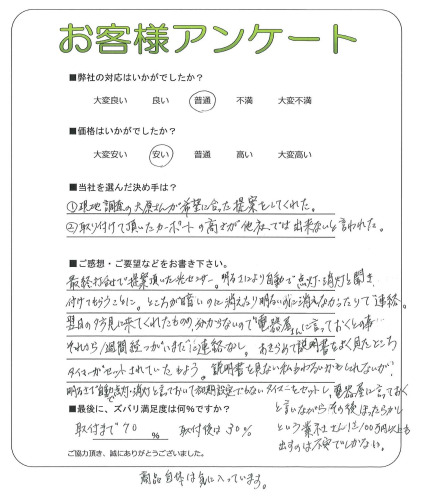 お客様アンケート
■弊社の対応はいかがでしたか？
大変良い 良い 普通 不満 大変不満
■価格はいかがでしたか？
大変安い 安い 普通 高い 大変高い
■当社を選んだ決め手は？
①現地調査の大原さんが希望に合った提案をしてくれた。
②取り付けて頂いたカーポートの高さが他店では出来ないと言われた。
■ご感想・ご要望などをお書き下さい。
最終打合せで提案頂いた光センサー。明るさにより自動で点灯・消灯と聞き、
付けてもらうことに。ところが暗いのに消えたり明るいのに消えなかったりで連絡。
翌日の夕方見に来てくれたものの、分からないので"電器屋さんに言っておくとの事…
それから1週間経つがいまだに連絡なし。あきらめて説明書をよく見たところ
タイマーがセットされていたもよう。説明書を見ない私もわるいかもしれないが！
明るさで自動点灯・消灯と言っておいて初期設定でもないタイマーをセットし、電器屋に言っておく
と言いながらその後ほったらかし
という業社さんに100万円以上も
出すのは不安でしかない。
■最後に、ズバリ満足度は何％ですか？
取付まで70 % 取付後は30%
ご協力頂き、誠にありがとうございました。
商品自体は気に入っています。